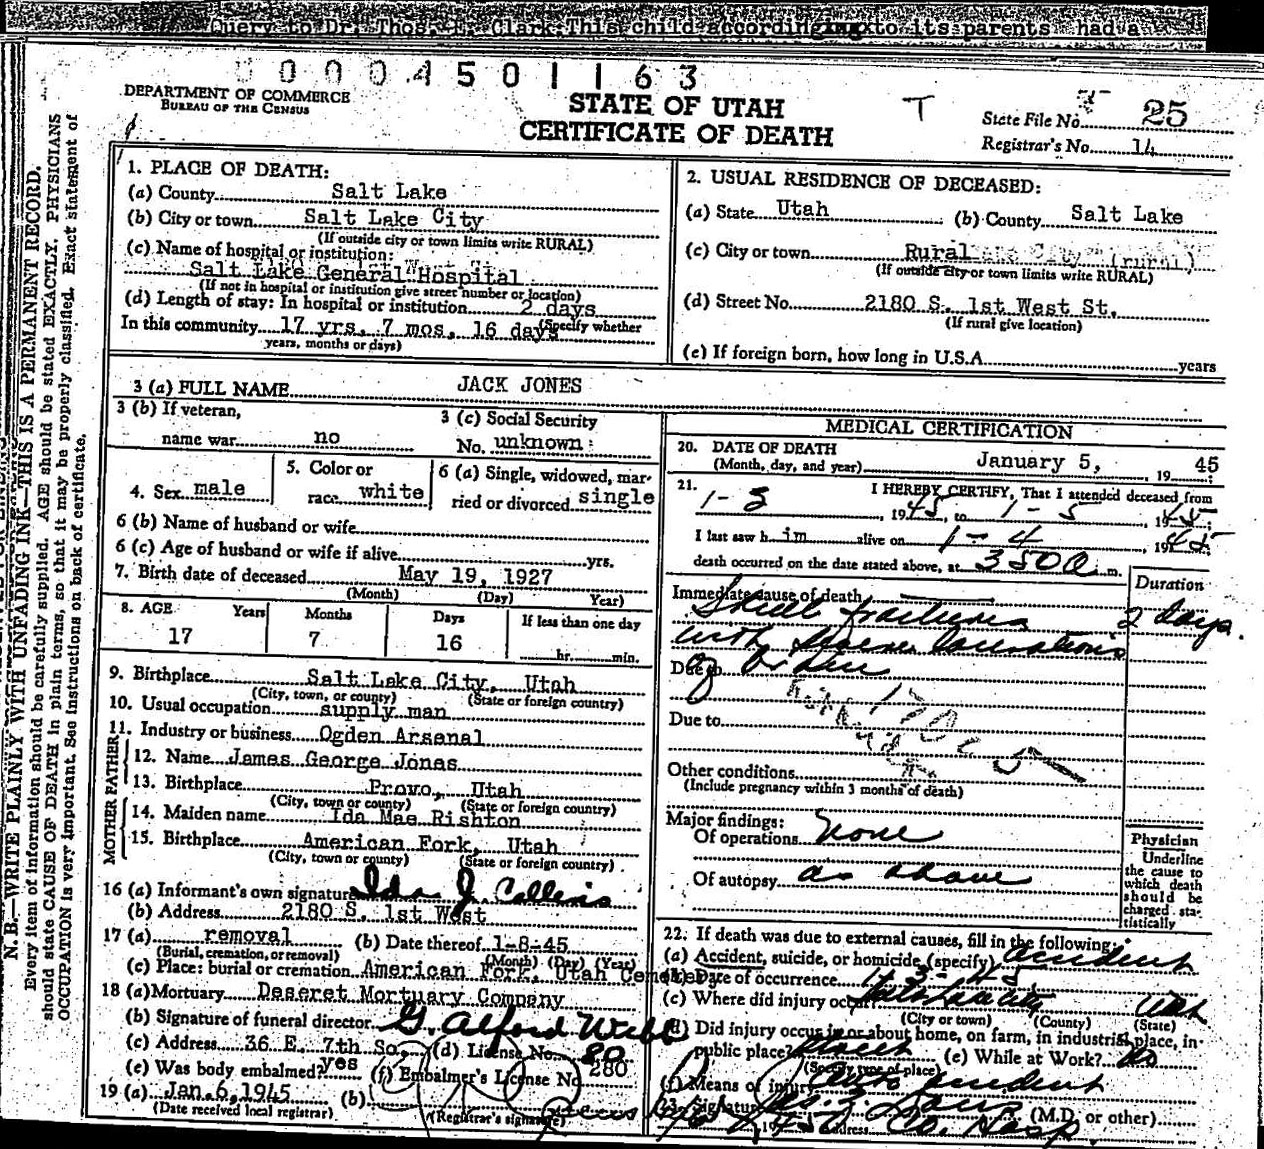 Query to Dr. Thos. L. Clark This child according to its parents had a
0004501163
DEPARTMENT OF COMMERCE
BUREAU OF THE CENSUS
STATE OF UTAH
CERTIFICATE OF DEATH
T
State File No. 25
Registrar's No. 14
N. B.—WRITE PLAINLY WITH UNFADING INK—THIS IS A PERMANENT RECORD.
Every item of information should be carefully supplied. AGE should be stated EXACTLY. PHYSICIANS
should state CAUSE OF DEATH in plain terms, so that it may be properly classified. Exact statement of
OCCUPATION is very important. See instructions on back of certificate.
1. PLACE OF DEATH:
(a) County Salt Lake
(b) City or town Salt Lake City
(If outside city or town limits write RURAL)
(c) Name of hospital or institution:
Salt Lake General Hospital
(If not in hospital or institution give street number or location)
(d) Length of stay: In hospital or institution 2 days
In this community 17 yrs. 7 mos. 16 days (Specify whether
years, months or days)
2. USUAL RESIDENCE OF DECEASED:
(a) State Utah (b) County Salt Lake
(c) City or town Rural (rural)
(If outside city or town limits write RURAL)
(d) Street No. 2180 S. 1st West St.
(If rural give location)
(e) If foreign born, how long in U.S.A. years
3 (a) FULL NAME JACK JONES
3 (b) If veteran,
name war no
3 (c) Social Security
No. unknown
4. Sex male
5. Color or
race white
6 (a) Single, widowed, mar-
ried or divorced single
6 (b) Name of husband or wife
6 (c) Age of husband or wife if alive yrs.
7. Birth date of deceased May 19, 1927
(Month) (Day) Year)
8. AGE Years Months Days If less than one day
17 7 16 hr. min.
9. Birthplace Salt Lake City, Utah
(City, town, or county) (State or foreign country)
10. Usual occupation supply man
11. Industry or business Ogden Arsenal
FATHER
12. Name James George Jones
13. Birthplace Provo, Utah
(City, town or county) (State or foreign country)
MOTHER
14. Maiden name Ida Mae Rishton
15. Birthplace American Fork, Utah
(City, town or county) (State or foreign country)
16 (a) Informant's own signature Ida J. Collins
(b) Address 2180 S. 1st West
17 (a) removal (b) Date thereof 1-8-45
(Burial, cremation, or removal) (Month) (Day) (Year)
(c) Place: burial or cremation American Fork, Utah Cemetery
18 (a) Mortuary Deseret Mortuary Company
(b) Signature of funeral director G. Alford Webb
(c) Address 36 E. 7th So. (d) License No. 80
(e) Was body embalmed? yes (f) Embalmer's License No. 280
19 (a) Jan. 6, 1945 (b)
(Date received local registrar) (Registrar's signature)
MEDICAL CERTIFICATION
20. DATE OF DEATH
(Month, day, and year) January 5, 19 45
21. I HEREBY CERTIFY, That I attended deceased from
1-3, 1945, to 1-5, 1945;
I last saw h im alive on 1-4, 1945
death occurred on the date stated above, at 350 a m.
Immediate cause of death
Duration
Skull fracture 2 days.
with severe lacerations
Due to of brain
170c-5
Due to
Other conditions
(Include pregnancy within 3 months of death)
Major findings:
Of operations None
Of autopsy as above
Physician
Underline
the cause to
which death
should be
charged sta-
tistically
22. If death was due to external causes, fill in the following:
(a) Accident, suicide, or homicide (specify) accident
(b) Date of occurrence 1-3-45
(c) Where did injury occur Salt Lake City Utah
(City or town) (County) (State)
(d) Did injury occur in or about home, on farm, in industrial place, in
public place? Street (e) While at Work? No
(Specify type of place)
(f) Means of injury Auto accident
23. Signature (M.D. or other)
Address Co. Hosp.